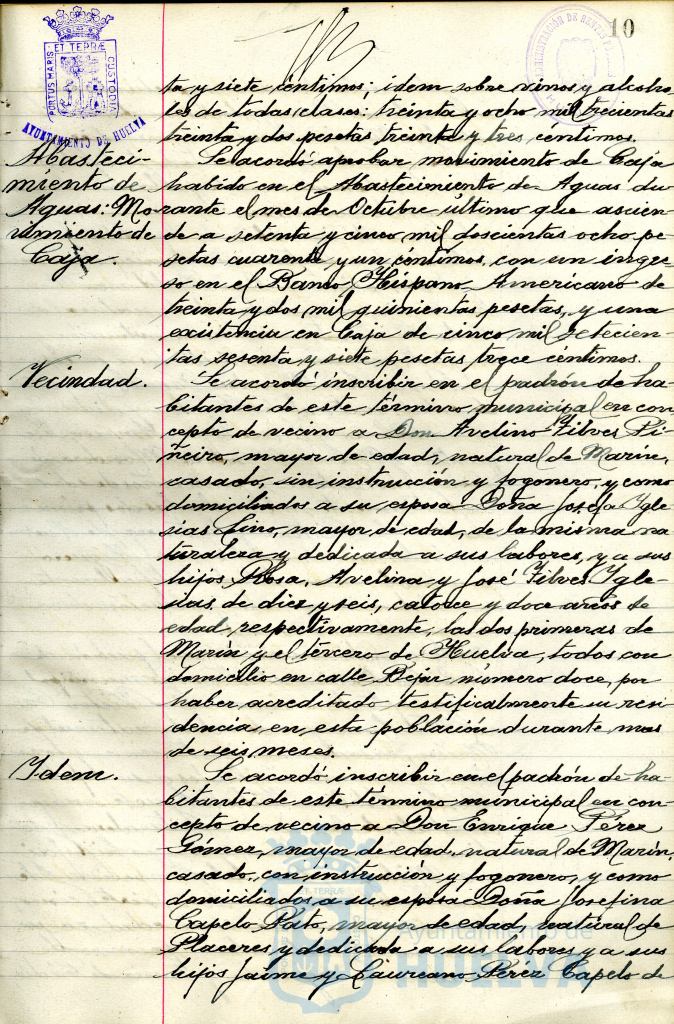 10
PORTUS MARIS ET TERRÆ CUSTODIA
AYUNTAMIENTO DE HUELVA
ta y siete céntimos; idem sobre vinos y alcoho-
les de todas clases: treinta y ocho mil trecientas
treinta y dos pesetas treinta y tres céntimos.
Abasteci-
miento de
Aguas: Mo-
vimiento de
Caja.
Se acordó aprobar movimiento de Caja
habido en el Abastecimiento de Aguas du-
rante el mes de Octubre último que ascien-
de a setenta y cinco mil doscientas ocho pe-
setas cuarenta y un céntimos, con un ingre-
so en el Banco Hispano Americano de
treinta y dos mil quinientas pesetas, y una
existencia en Caja de cinco mil setecien-
tas sesenta y siete pesetas trece céntimos.
Vecindad.
Se acordó inscribir en el padrón de ha-
bitantes de este término municipal en con-
cepto de vecino a Don Avelino Filves Pi-
ñeiro, mayor de edad, natural de Marin,
casado, sin instrucción y fogonero, y como
domiciliados a su esposa Doña Josefa Ygle-
sias Lino, mayor de edad, de la misma na-
turaleza y dedicada a sus labores, y a sus
hijos Rosa, Avelina y José Filves Ygle-
sias, de diez y seis, catorce y doce años de
edad respectivamente, las dos primeras de
Marin y el tercero de Huelva, todos con
domicilio en calle Bejar número doce, por
haber acreditado testificalmente su resi-
dencia en esta población durante mas
de seis meses.
Idem.
Se acordó inscribir en el padrón de ha-
bitantes de este término municipal en con-
cepto de vecino a Don Enrique Pérez
Gómez, mayor de edad, natural de Marin,
casado, con instrucción y fogonero, y como
domiciliados a su esposa Doña Josefina
Capelo Pato, mayor de edad, natural de
Placeres y dedicada a sus labores y a sus
hijos Jaime y Laureano Pérez Capelo de
Ayuntamiento de
HUELVA